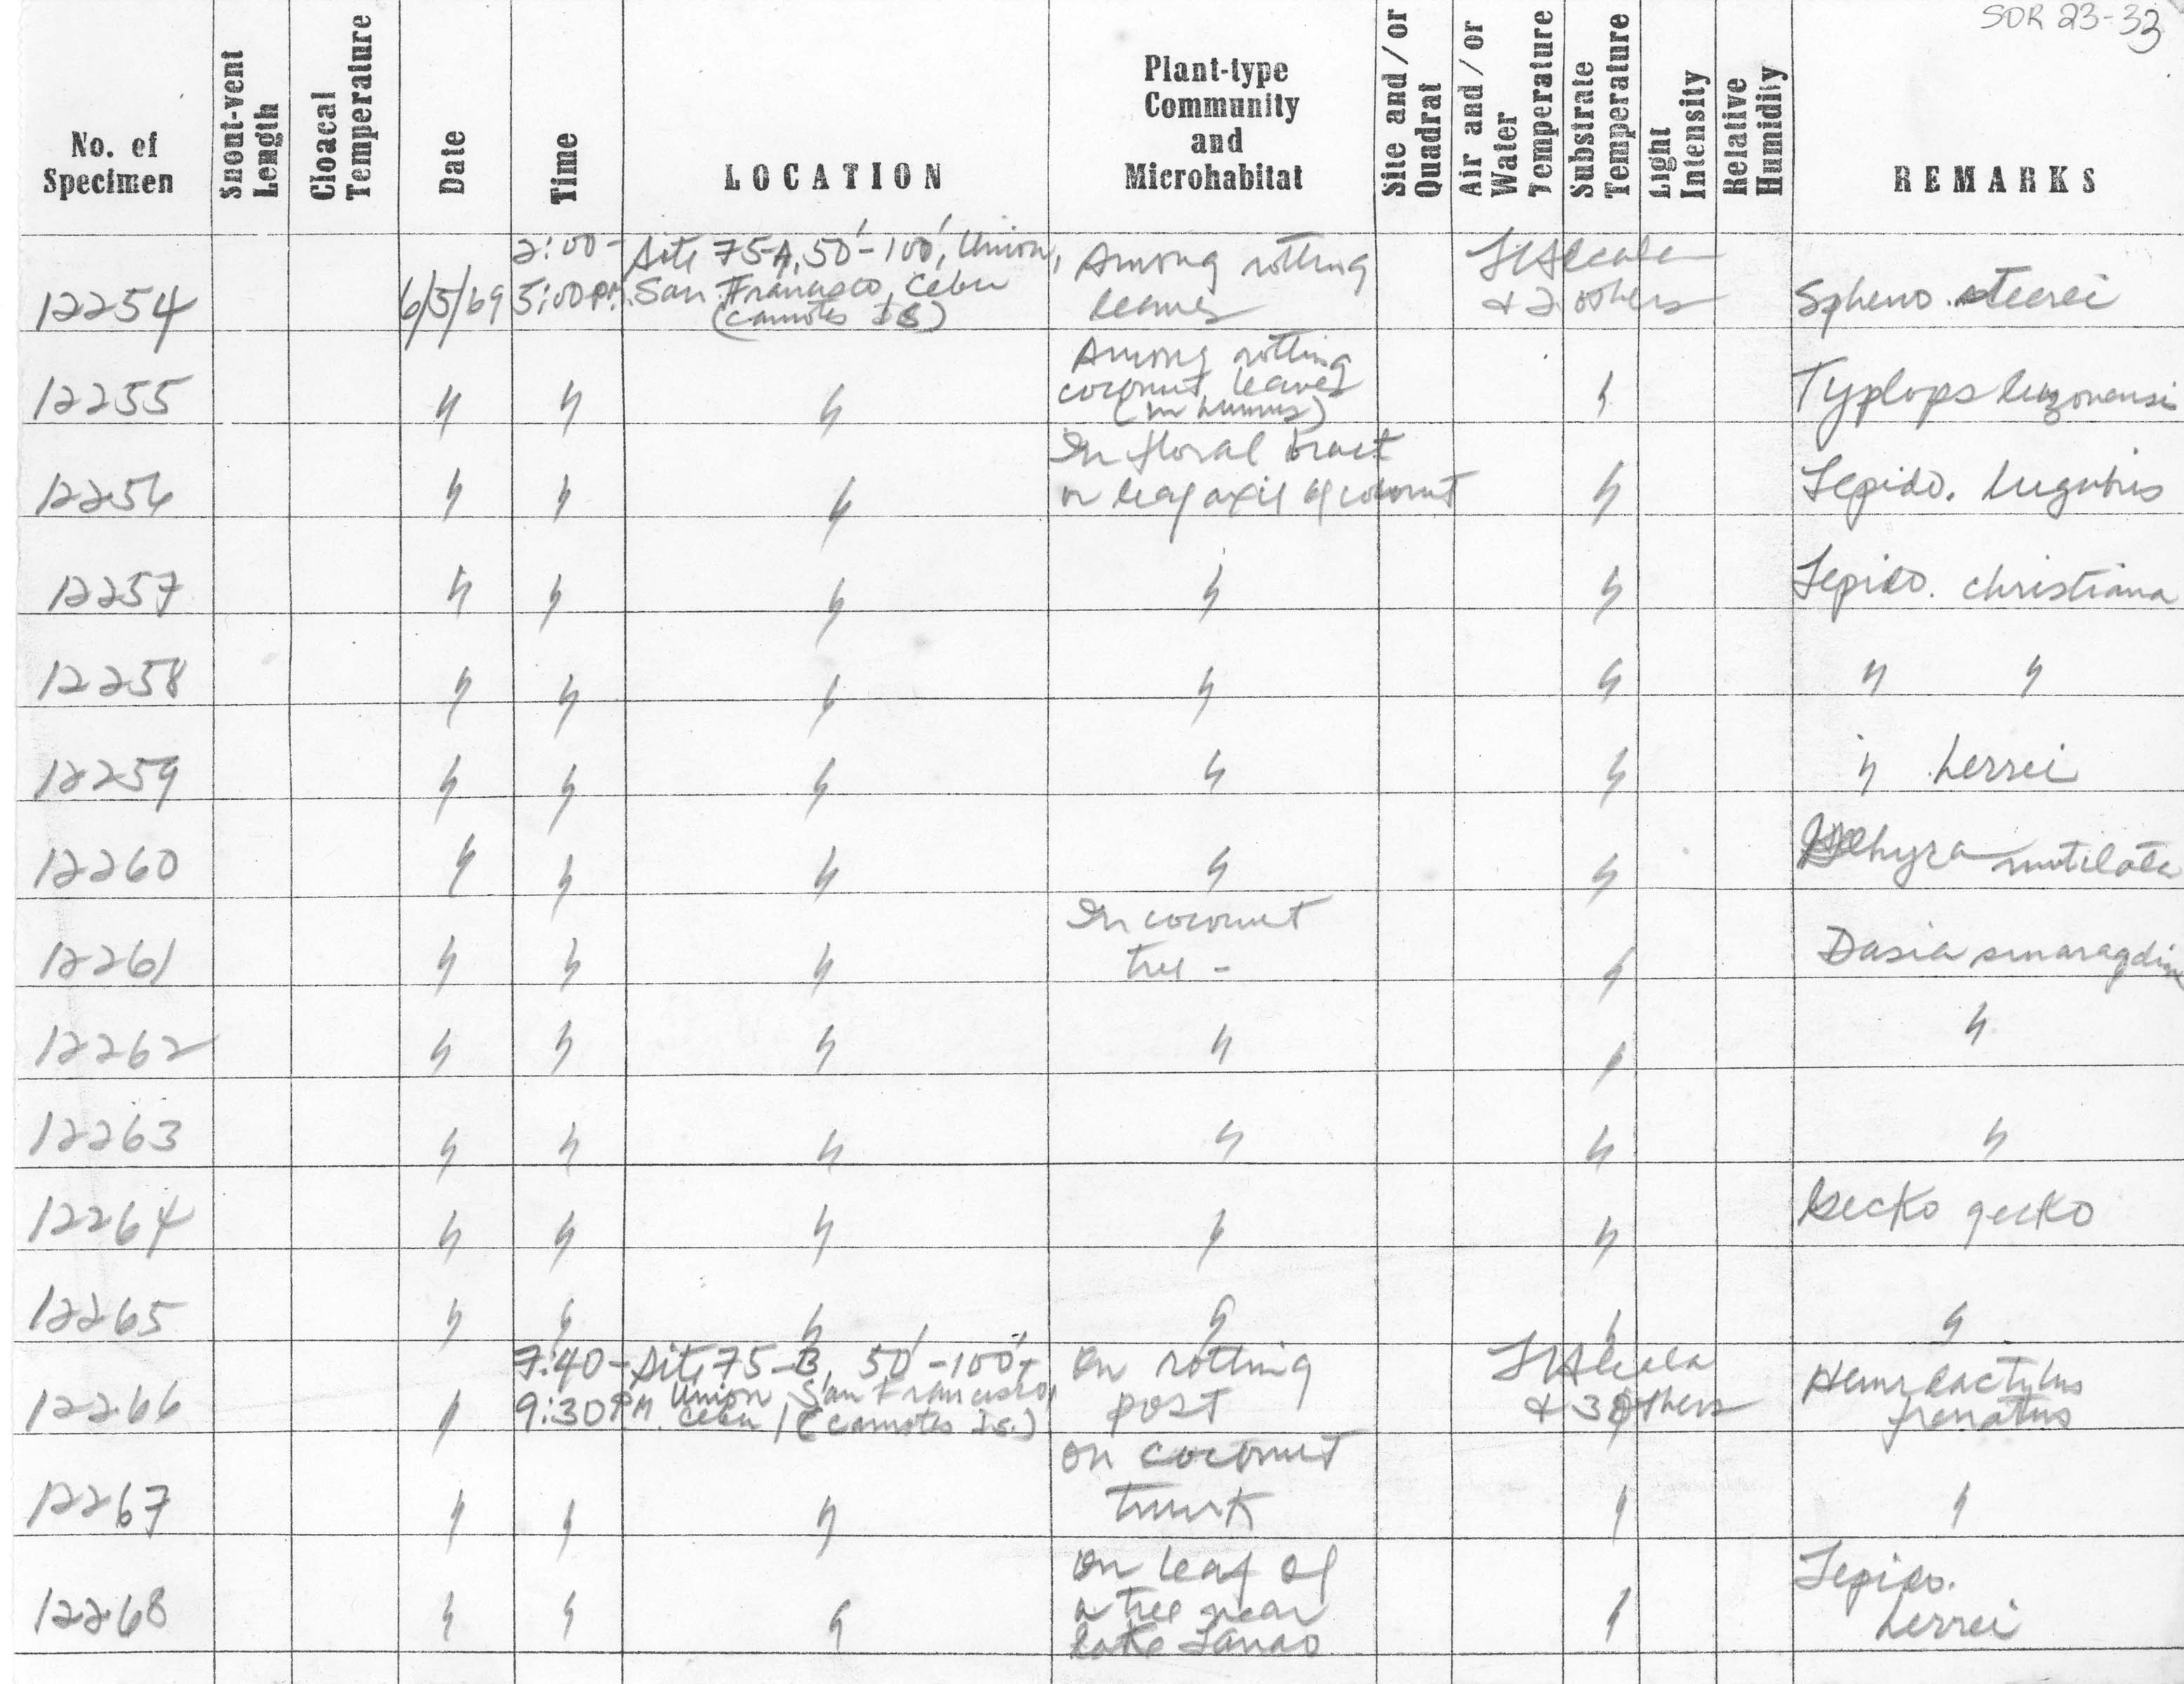 SDR 23-33
No. of Specimen | Snout-vent Length | Cloacal Temperature | Date | Time | LOCATION | Plant-type Community and Microhabitat | Site and/or Quadrat | Air and/or Water Temperature | Substrate Temperature | Light Intensity | Relative Humidity | REMARKS
12254 | 6/5/69 | 2:00-5:00 PM | Site 75-A, 50'-100', Union, San Francisco, Cebu (Camotes Is) | Among rotting leaves | LAlcala & 2 others | Spheno. steerei
12255 | " | " | " | Among rotting coconut leaves (in humus) | " | Typlops luzonensis
12256 | " | " | " | In floral bract or leaf axil of coconut | " | Lepido. lugubris
12257 | " | " | " | " | " | Lepido. christiana
12258 | " | " | " | " | " | " "
12259 | " | " | " | " | " | " herrei
12260 | " | " | " | " | " | Gehyra mutilata
12261 | " | " | " | In coconut tree - | " | Dasia smaragdina
12262 | " | " | " | " | " | "
12263 | " | " | " | " | " | "
12264 | " | " | " | " | " | Gecko gecko
12265 | " | " | " | " | " | "
12266 | " | 7:40-9:30 PM | Site 75-B, 50'-100', Union, San Francisco, Cebu (Camotes Is.) | On rotting post | LAlcala & 3 others | Hemidactylus frenatus
12267 | " | " | " | On coconut trunk | " | "
12268 | " | " | " | On leaf of a tree near lake Lanao | " | Lepido. herrei